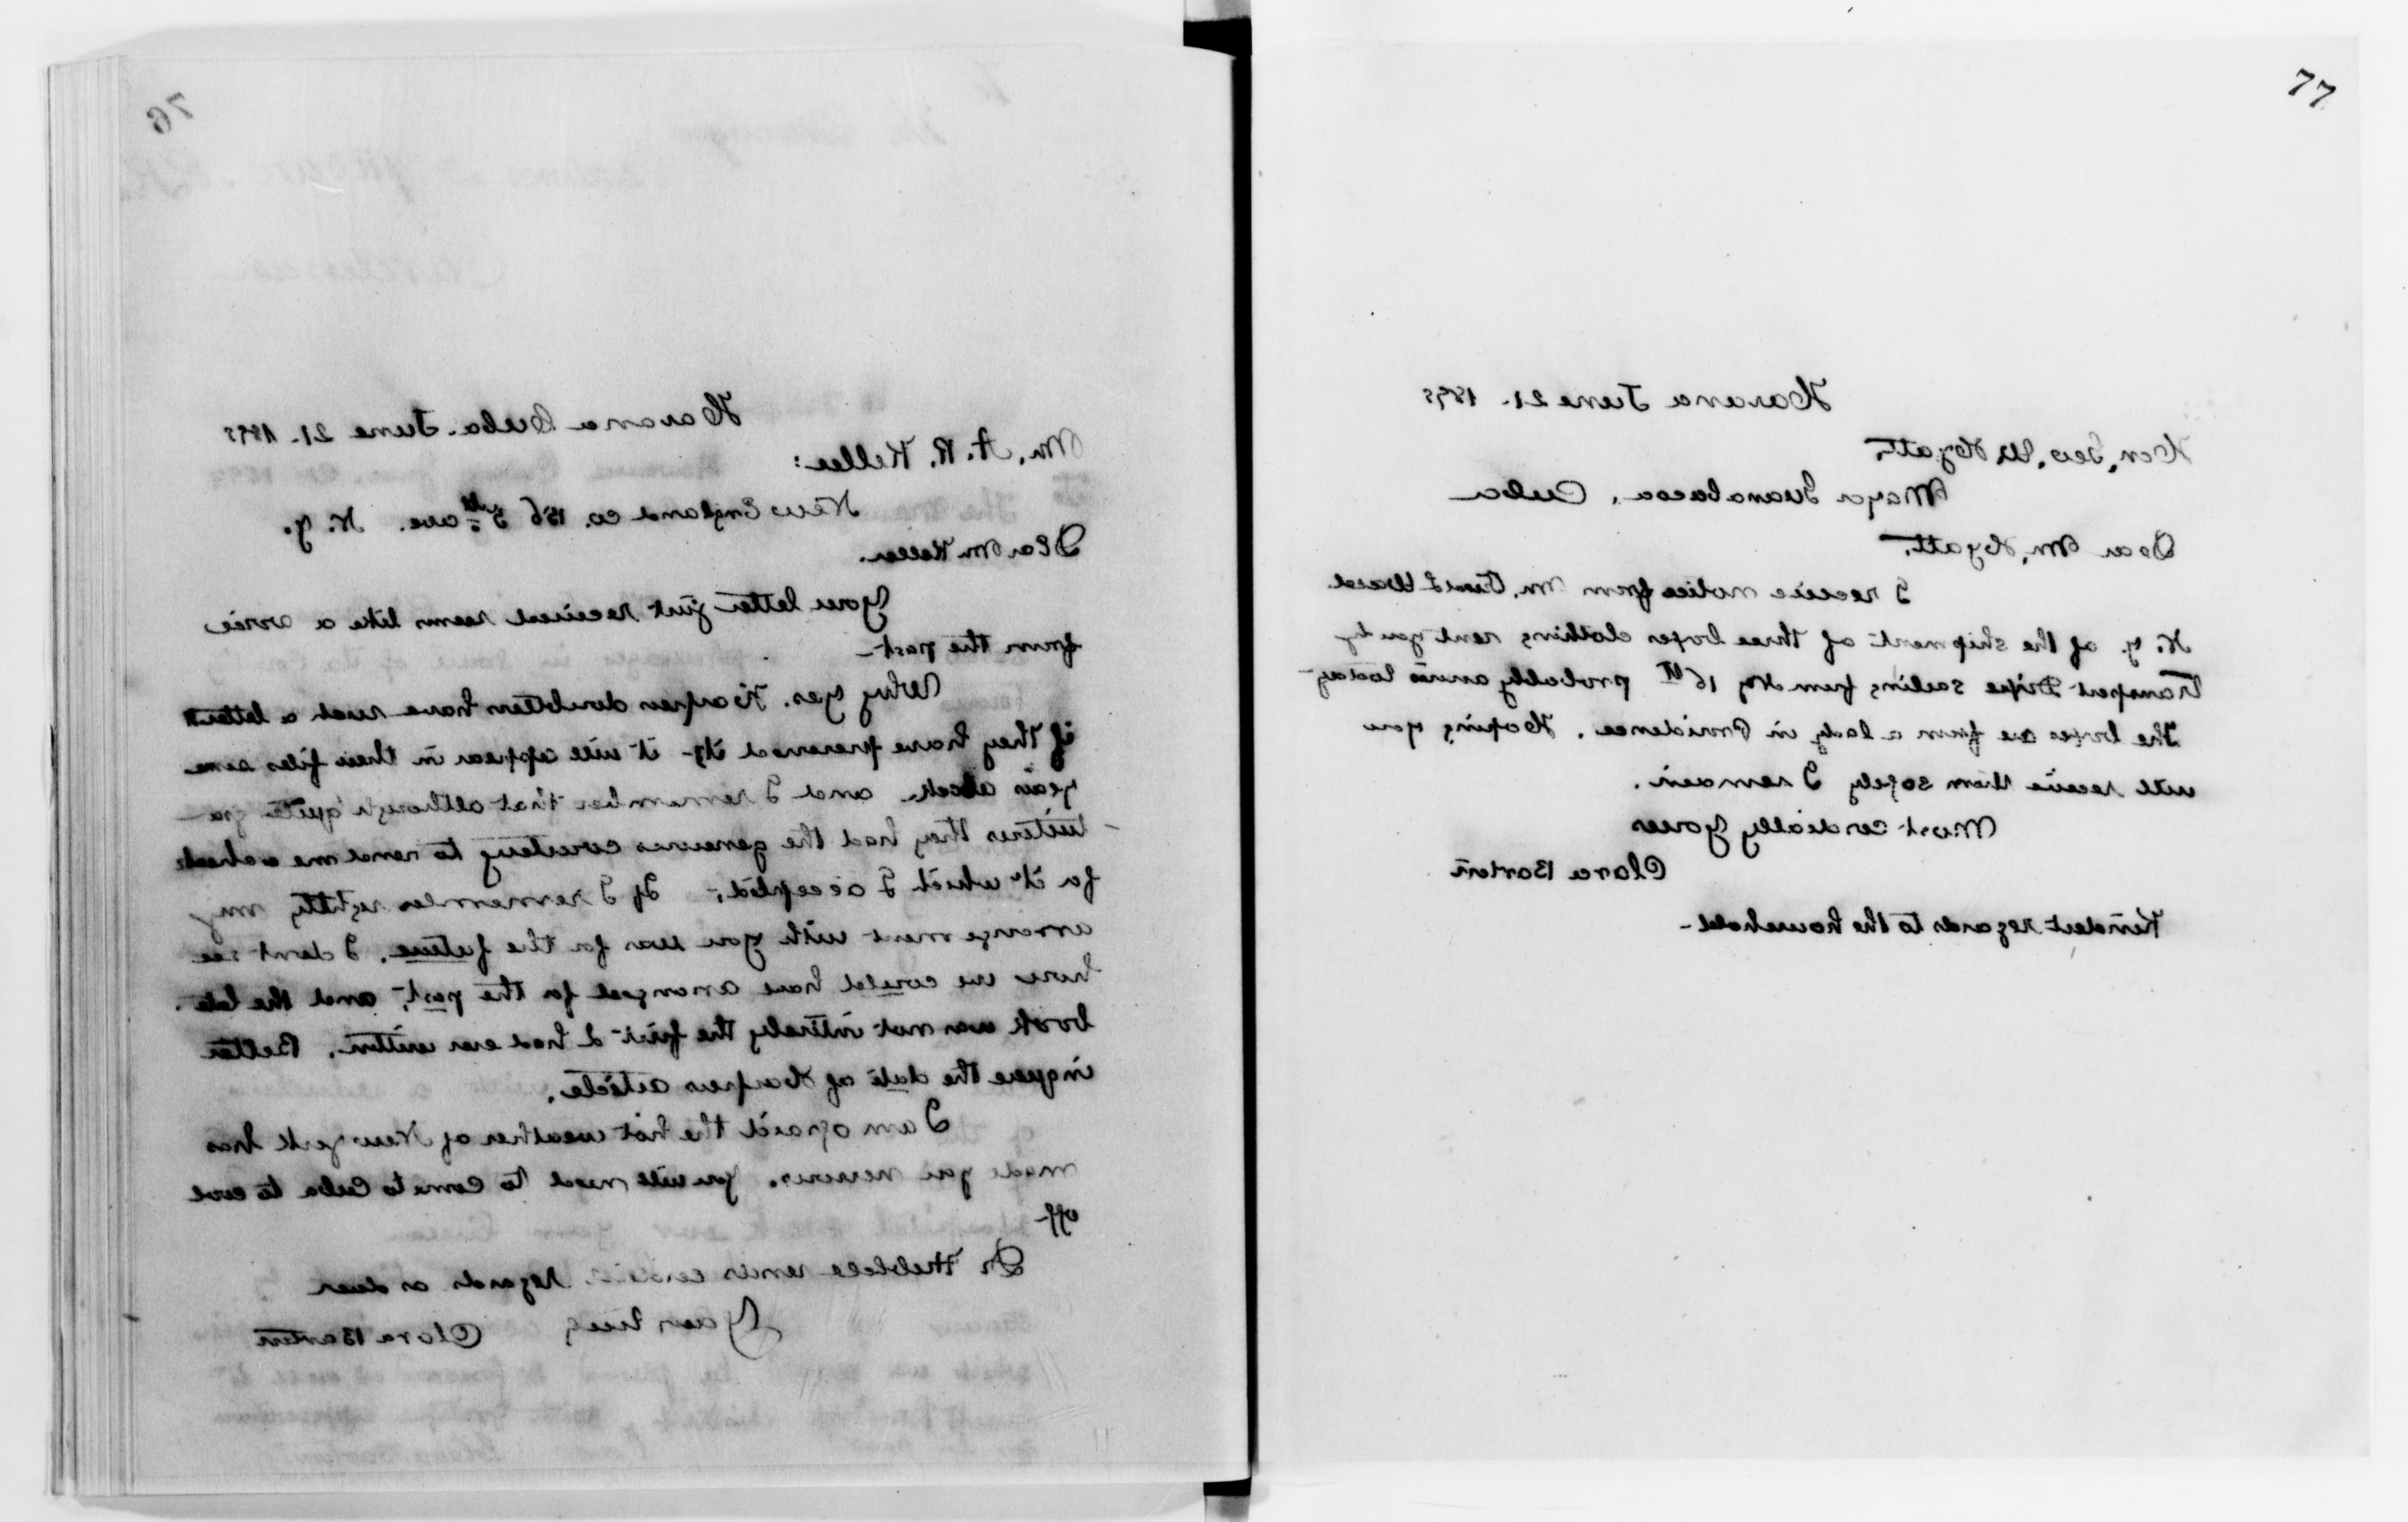 76
Havana Cuba. June 21 - 1899
Mr. A. R. Keller:
New England co. 156 5th ave. N. Y.
Dear Mr Keller.
Your letter just received seems like a voice
from the past -
Why yes. Harpers doubtless have such a letter
if they have preserved it - it will appear in their files some
years back and I remember that although quite gra-
tuitous they had the generous courtesy to send me a check
for it which I accepted; If I remember rightly my
arrangement with you was for the future. I dont see
how we could have arranged for the past, and the late
book was not entirely the first I had ever written. Better
inquire the date of Harpers article.
I am afraid the hot weather of New york has
made you nervous. You will need to come to Cuba to cool
off -
Dr Hubbell sends cordial regards as does
Yours truly Clara Barton
77
Havana June 21 - 1899
Hon. Geo. W. Hyatt,
Mayor Guanabacoa, Cuba
Dear Mr. Hyatt.
I receive notice from Mr.
N. Y. of the shipment of three boxes clothing sent you by
Transport sailing from NY 16th probably arrives today -
The boxes are from a lady in Providence. Hoping you
will receive them safely I remain.
Most cordially yours
Clara Barton
Kindest regards to the household -